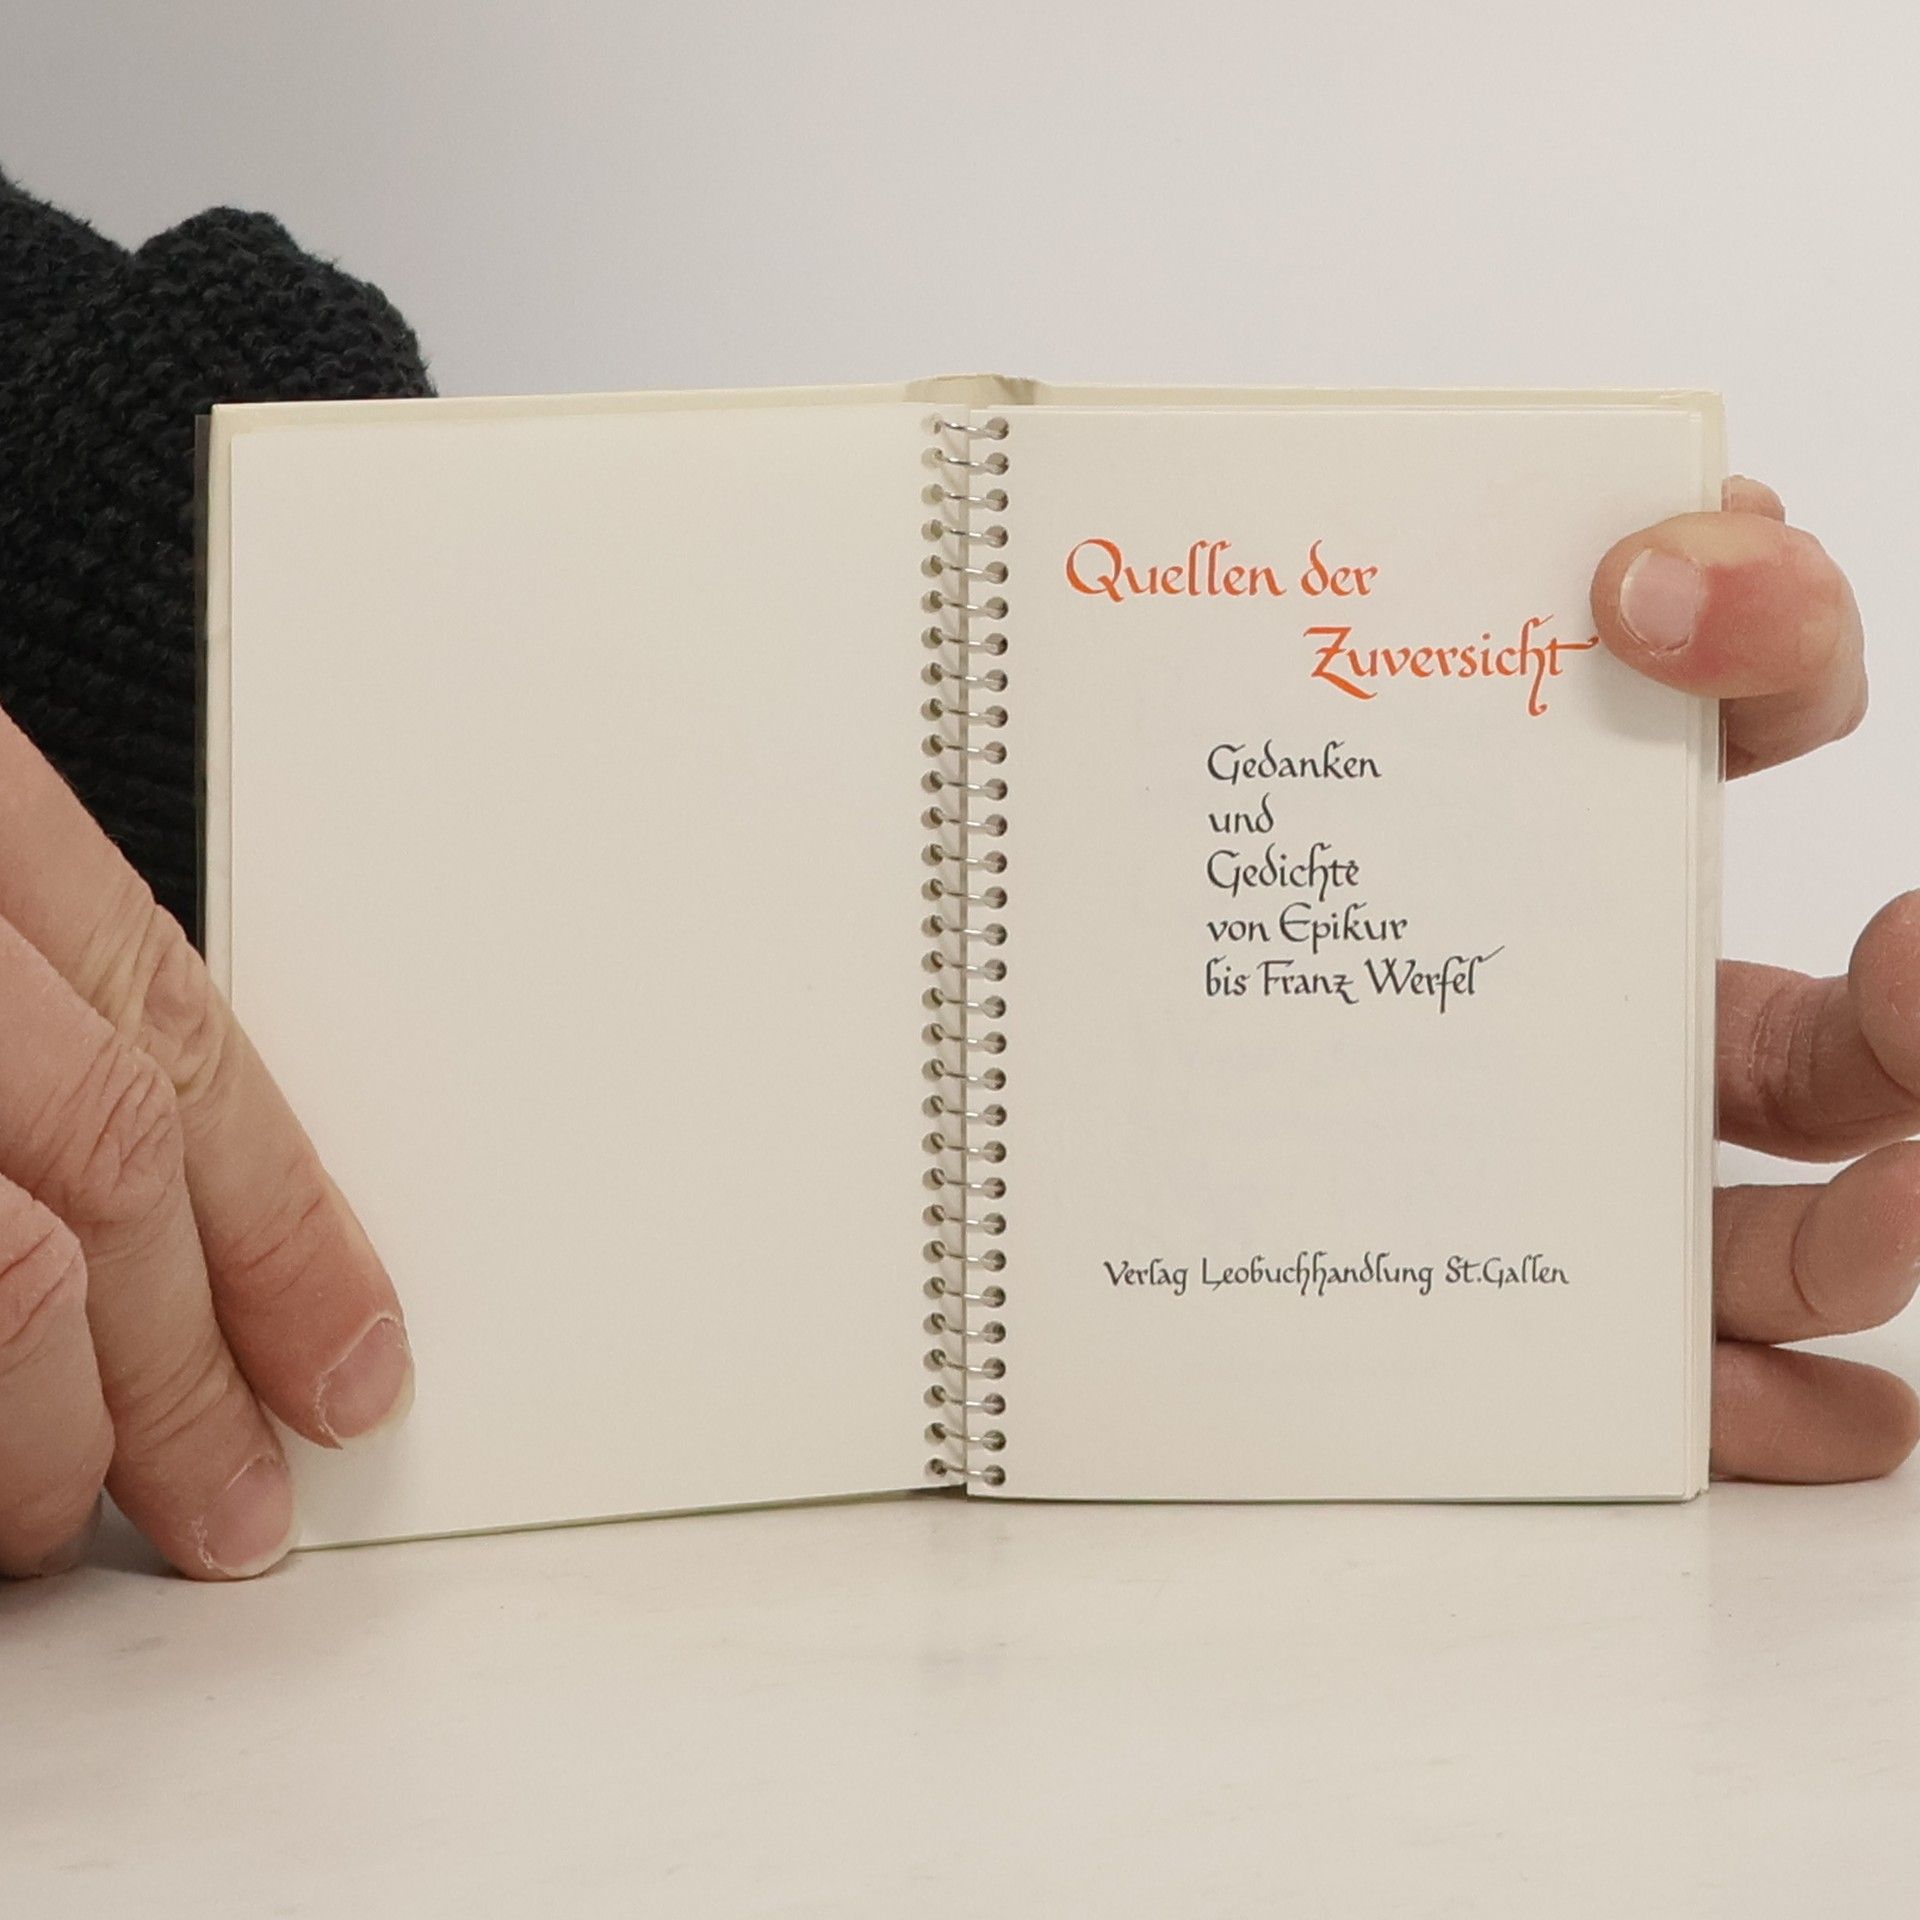 Quellen der
Zuversicht
Gedanken
und
Gedichte
von Epikur
bis Franz Werfel
Verlag Leobuchhandlung St.Gallen